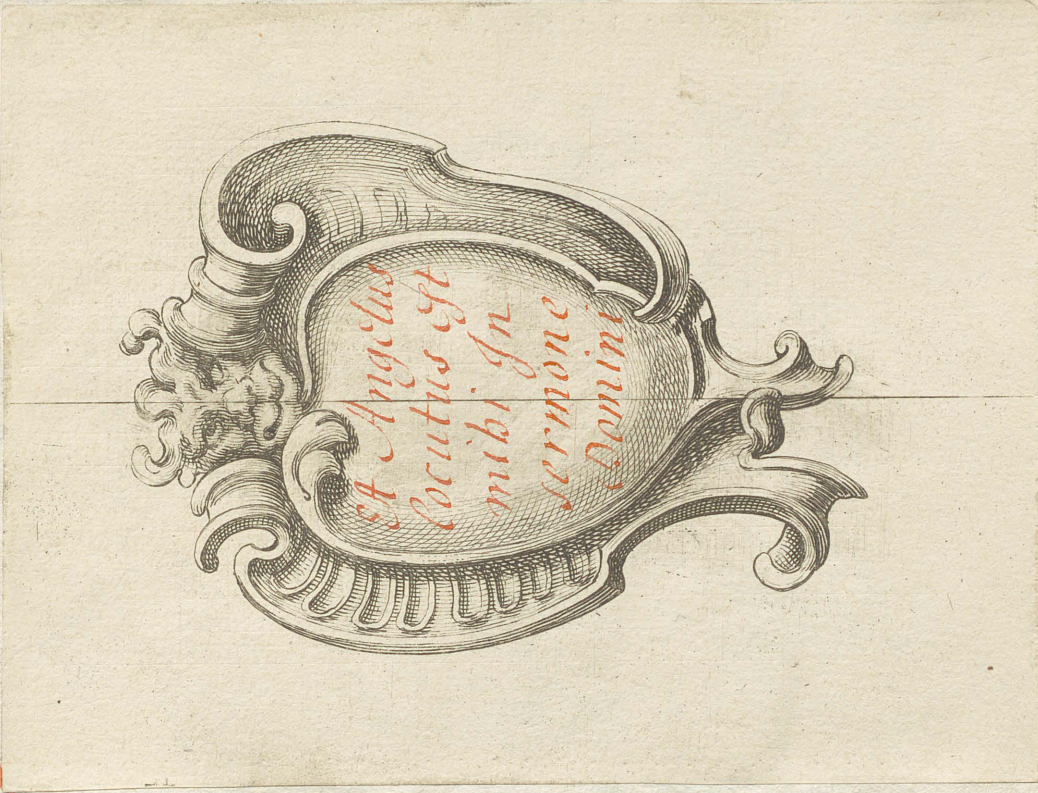 Et Angelus
locutus est
mihi In
sermone
Domini